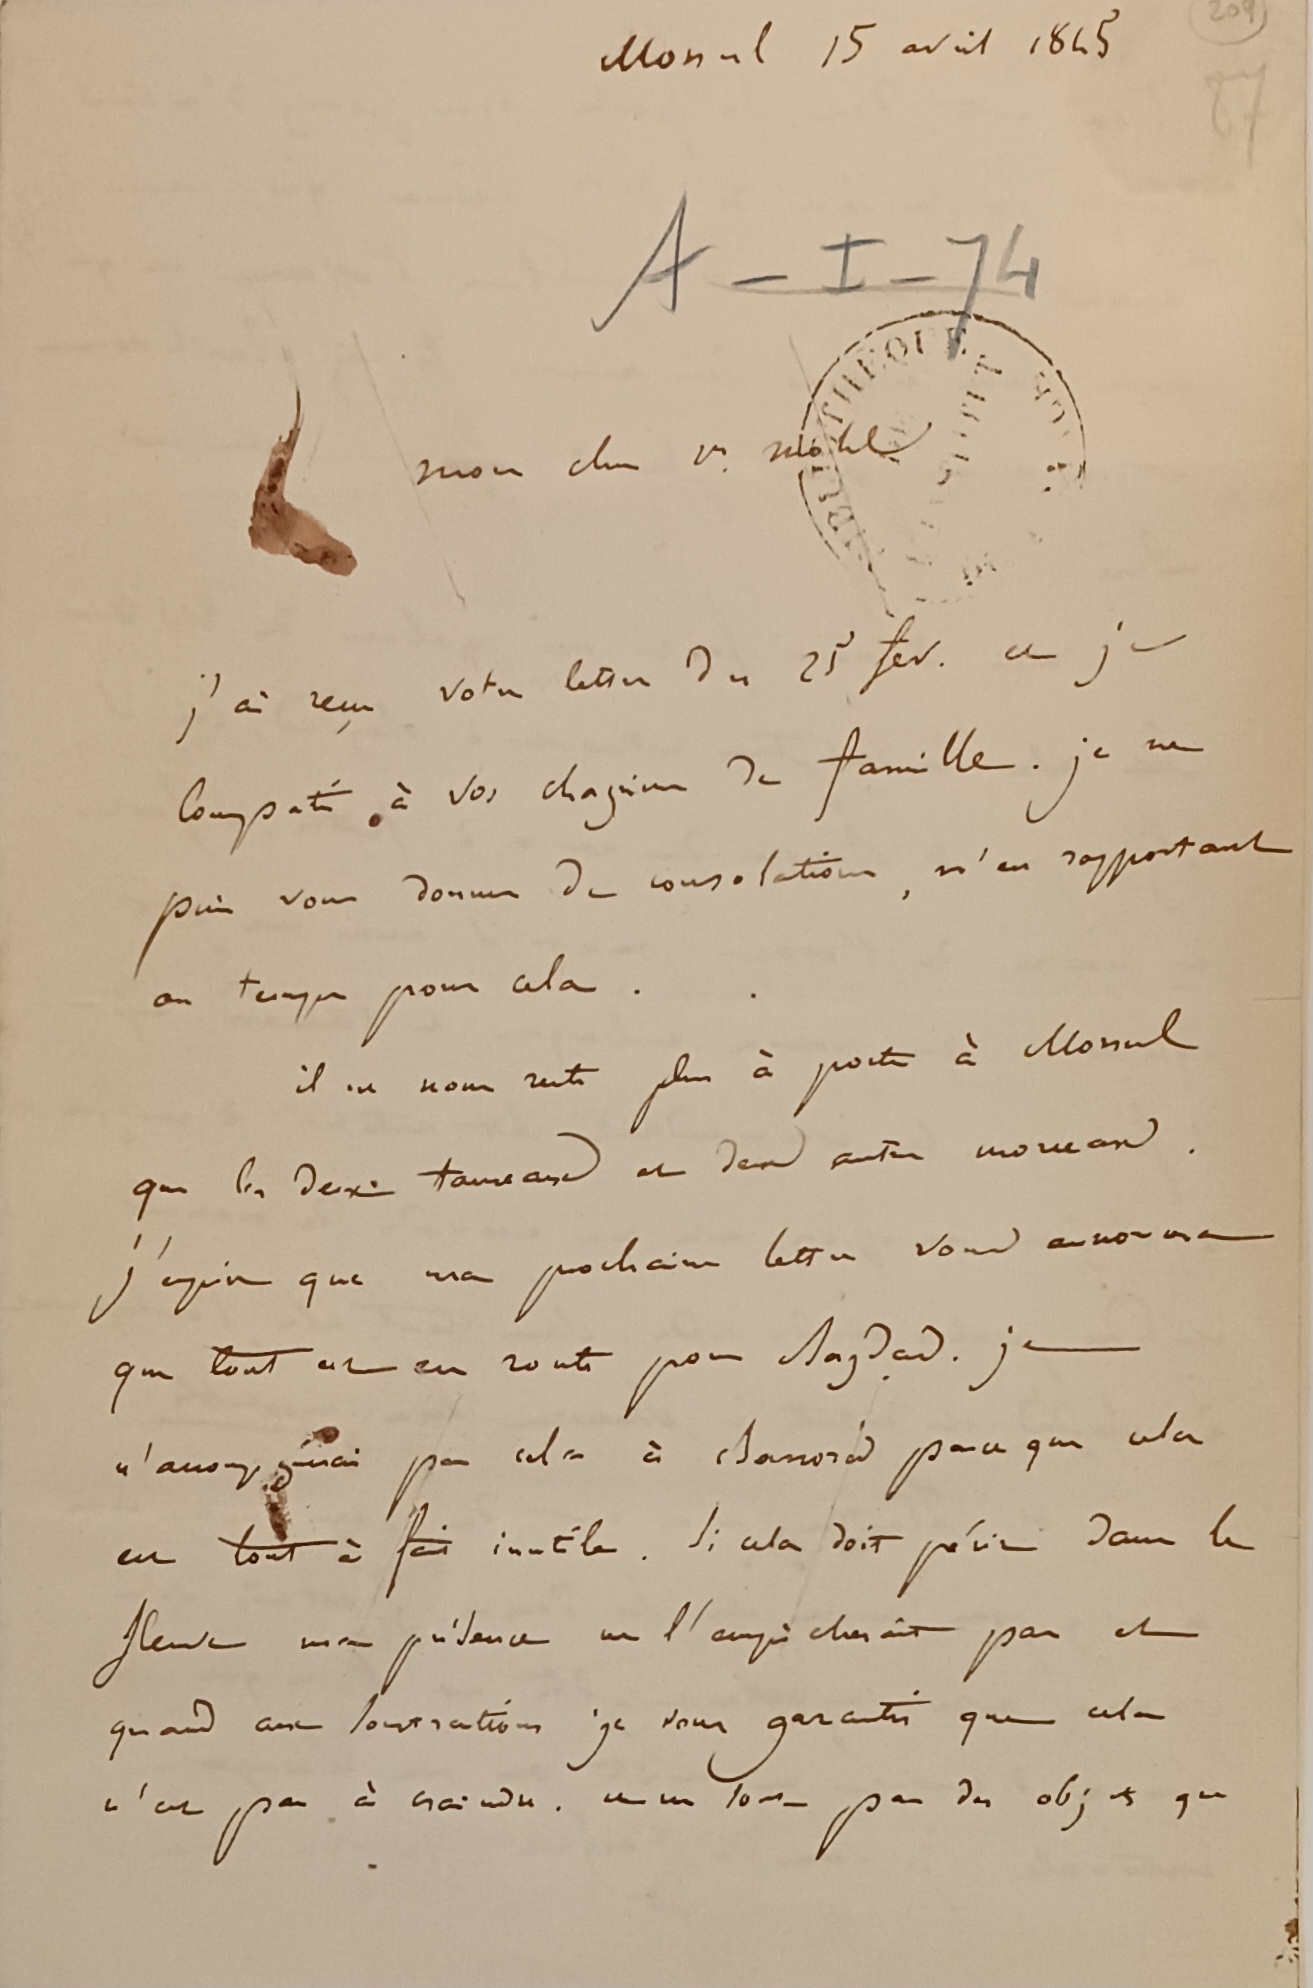 209
87
Mossul 15 avril 1845
A - I - 74
BIBLIOTHEQUE INSTITUT
mon cher Mr. Mohl
j'ai reçu votre lettre du 25 fev. et je
compatis à vos chagrins de famille. je ne
puis vous donner de consolations, m'en rapportant
au temps pour cela.
il ne nous reste plus à porter à Mossul
que les deux taureaux et deux autres morceaux.
j'espère que ma prochaine lettre vous annoncera
que tout est en route pour Bagdad. je
n'accompagnerai pas cela à Bassora parceque cela
est tout à fait inutile. Si cela doit périr dans le
fleuve ma présence ne l'empêcherait pas et
quand aux soustractions je vous garantis que cela
n'est pas à craindre. ce ne sont pas des objets que